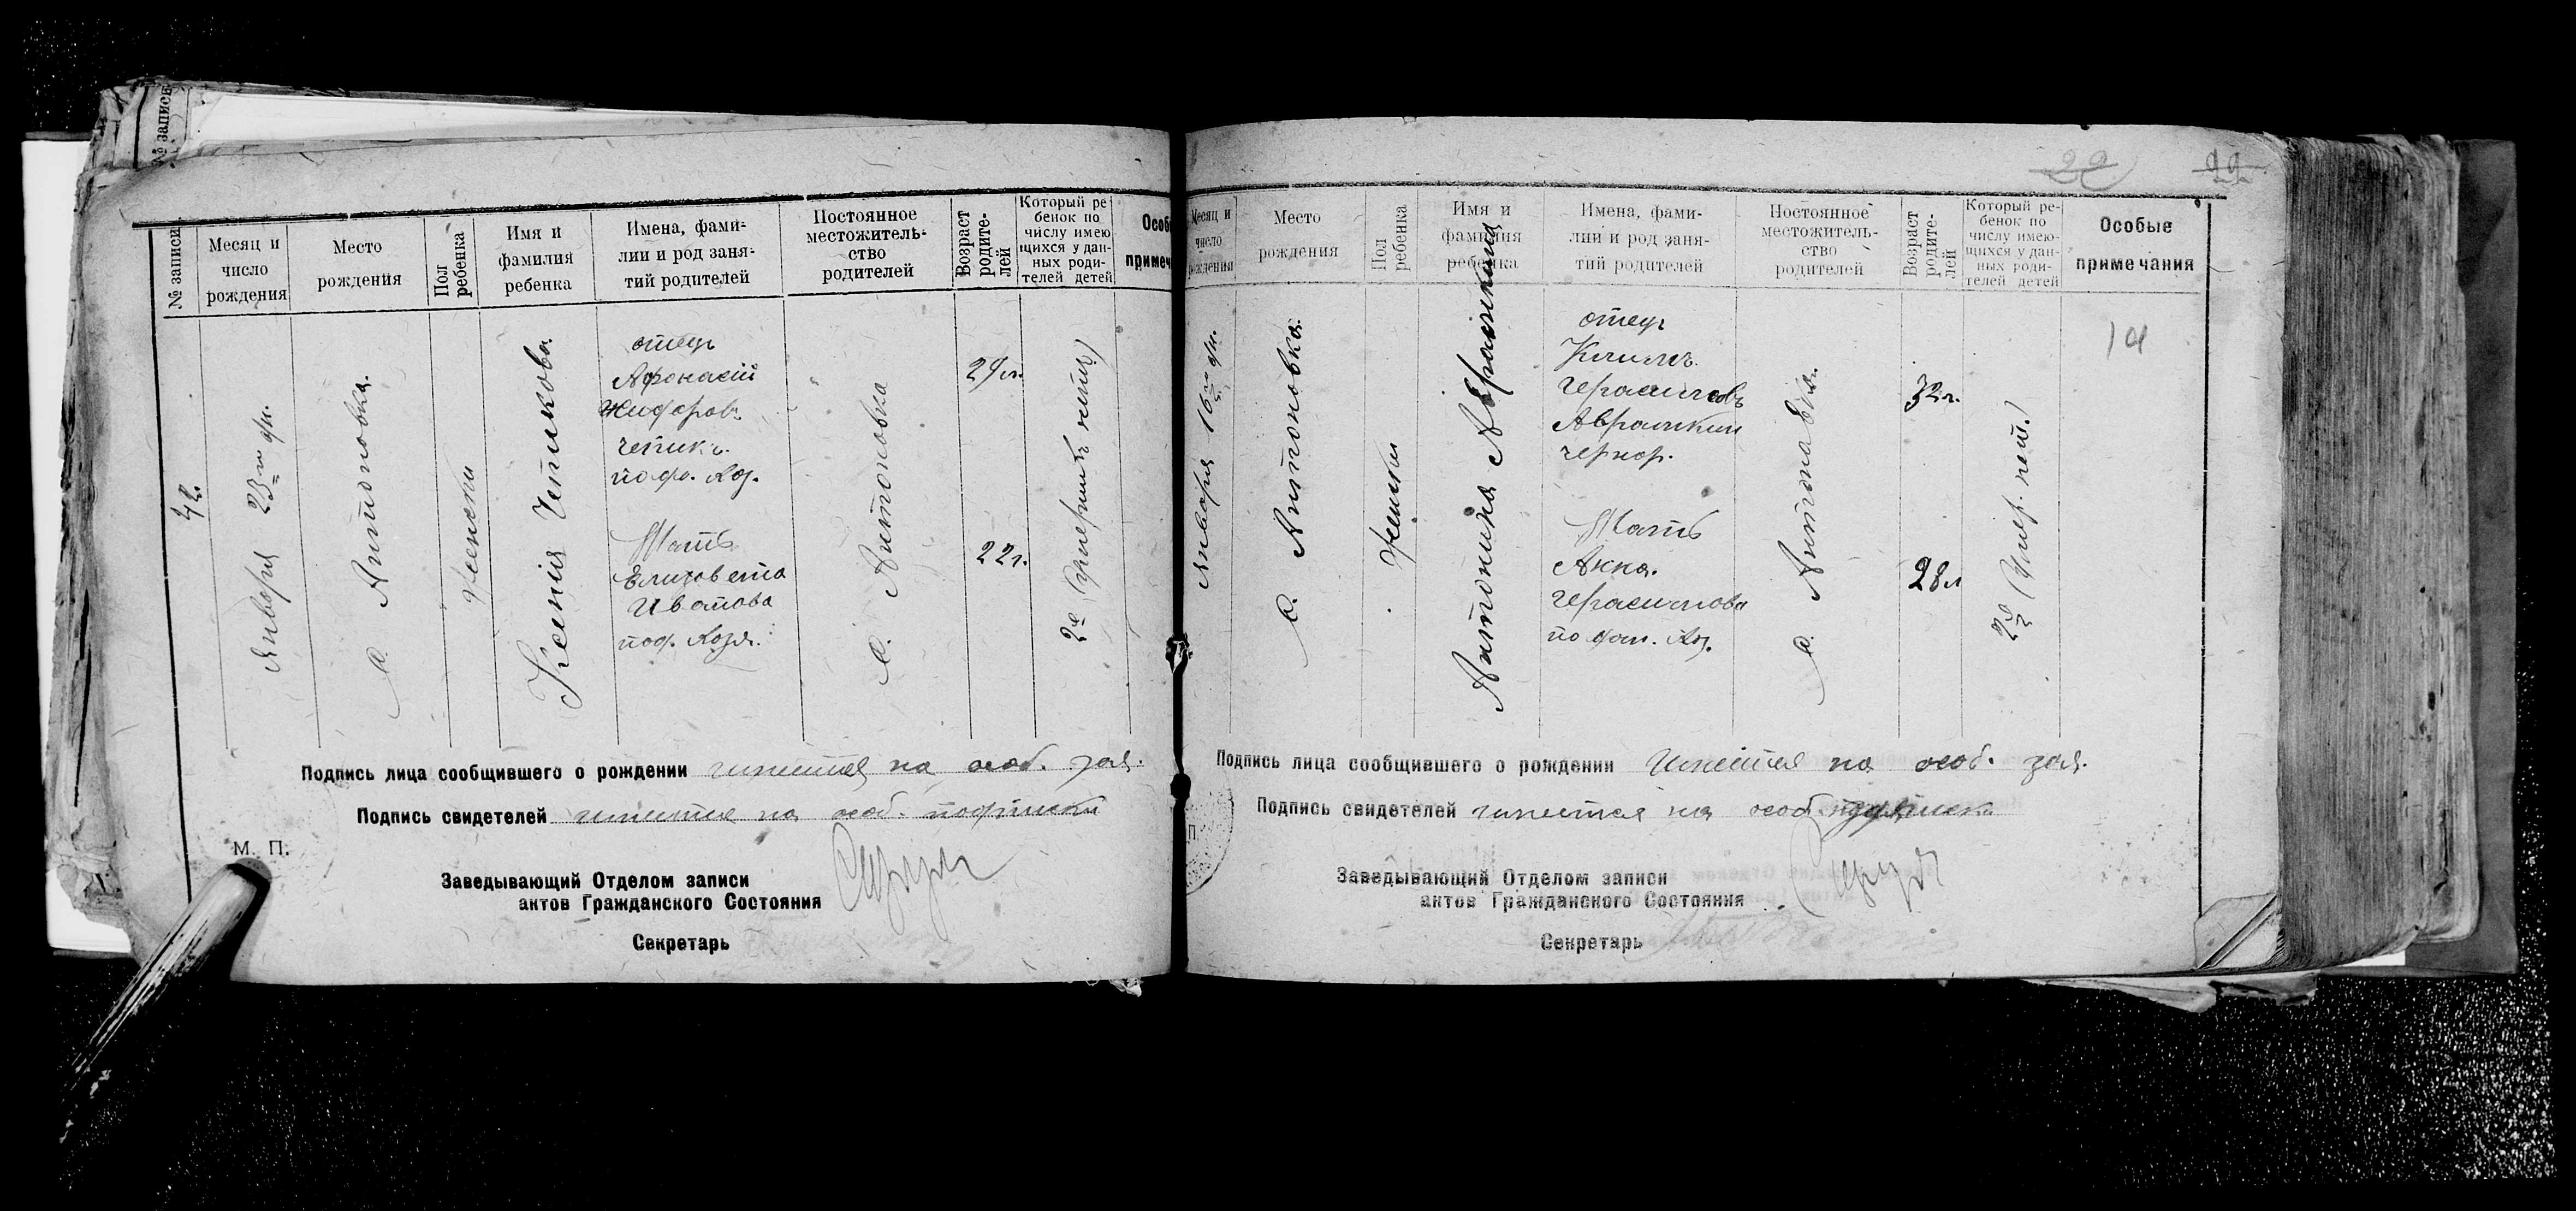 № записи
№ записи
Месяц и
число
рождения
Место
рождения
Пол
ребенка
Имя и
фамилия
ребенка
Имена, фами-
лии и род заня-
тий родителей
Постоянное
местожитель-
ство
родителей
Возраст
родите-
лей
Который ре-
бенок по
числу имею
щихся у дан-
ных роди-
телей детей
Особ
примеч
42.
Января 23го дн.
с. Антоновка.
женски
Ксенія Четикова.
отец
Афонасій
четикъ.
Мать
Елизовета
Ивонова
с. Антоновка
29 л.
22 г.
2й
Подпись лица сообщившего о рождении имеится на особ. зая.
Подпись свидетелей имеится на особ. подписки
М. П.
Заведывающий Отделом записи
актов Гражданского Состояния
Секретарь
22
Месяц и
число
рождения
Место
рождения
Пол
ребенка
Имя и
фамилия
ребенка
Имена, фами-
лии и род заня-
тий родителей
Постоянное
местожитель-
ство
родителей
Возраст
родите-
лей
Который ре-
бенок по
числу имею-
щихся у дан-
ных роди-
телей детей
Особые
примечания
Января 16го дн.
с. Антоновка.
женски
Антонина Аврамкина
отец
Климъ
Герасимовъ
Аврамкин
чернор.
Мать
Анна.
Герасимова
с. Антоновка.
32 г.
28 л
2й
14
Подпись лица сообщившего о рождении Имеится на особ. зая.
Подпись свидетелей имеится на особ. подписки
Заведывающий Отделом записи
актов Гражданского Состояния
Секретарь